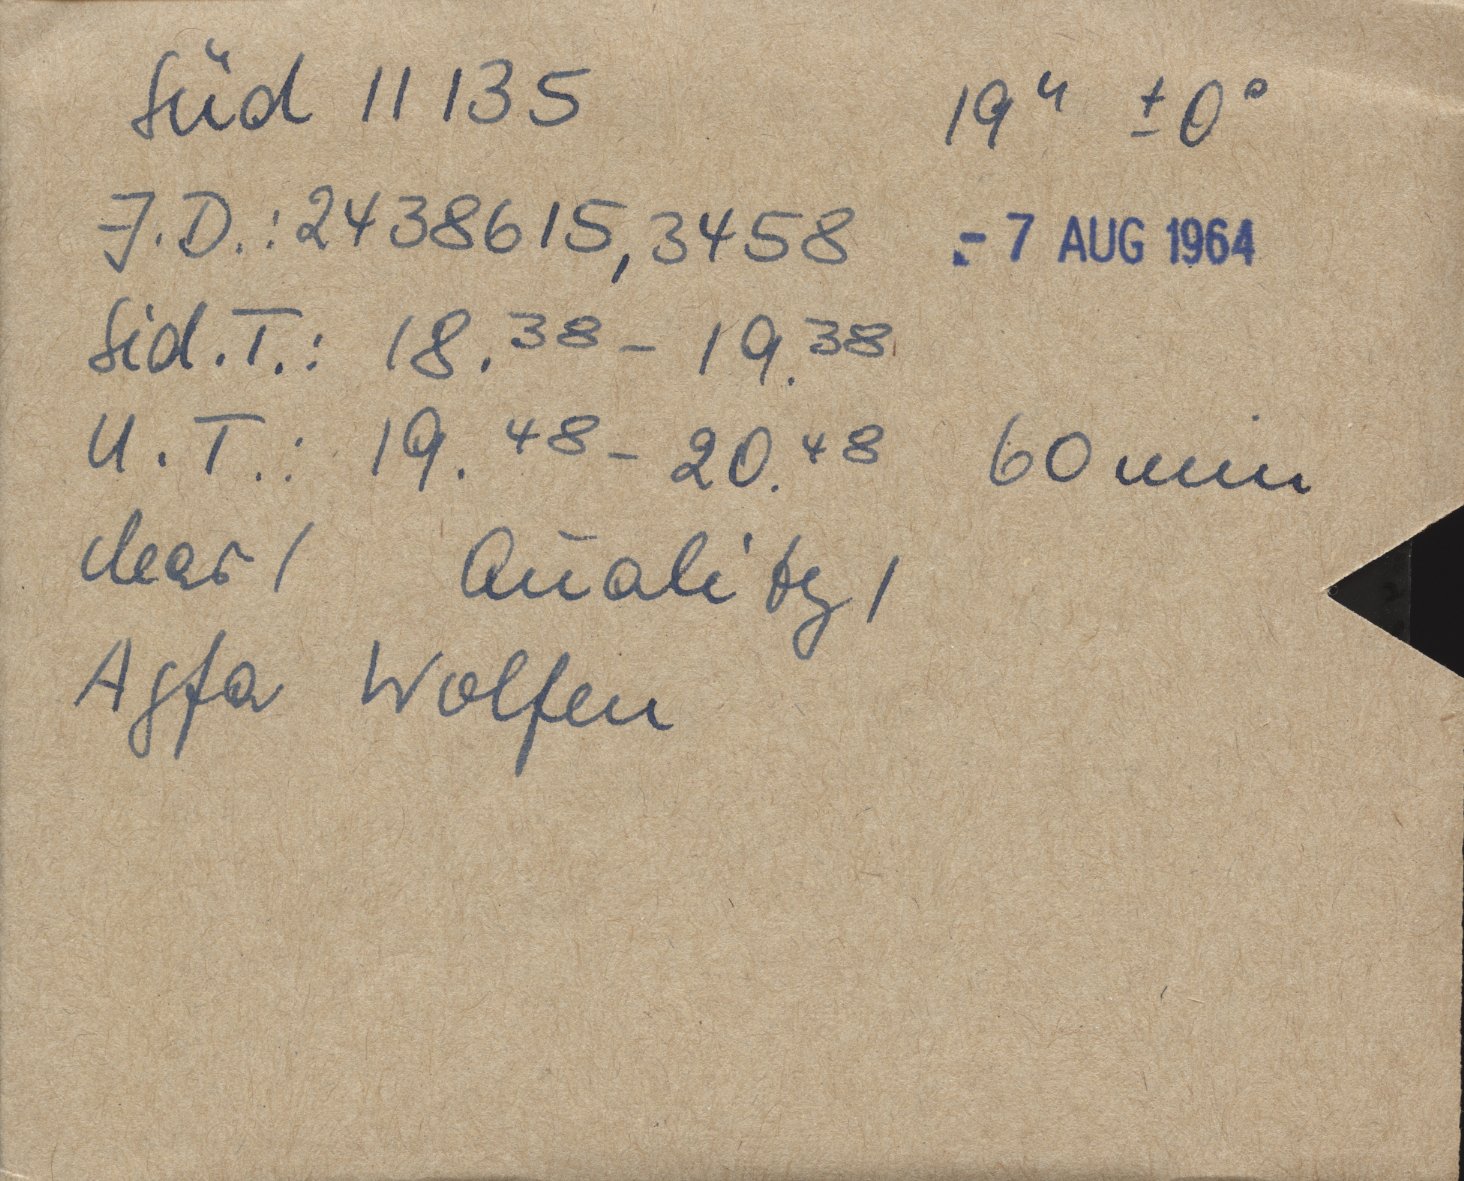 Süd 11135 19ʰ ±0°
J.D.: 2438615,3458 - 7 AUG 1964
Sid.T.: 18.³⁸ – 19.³⁸
U.T.: 19.⁴⁸ – 20.⁴⁸ 60 min
clear / Quality 1
Agfa Wolfen